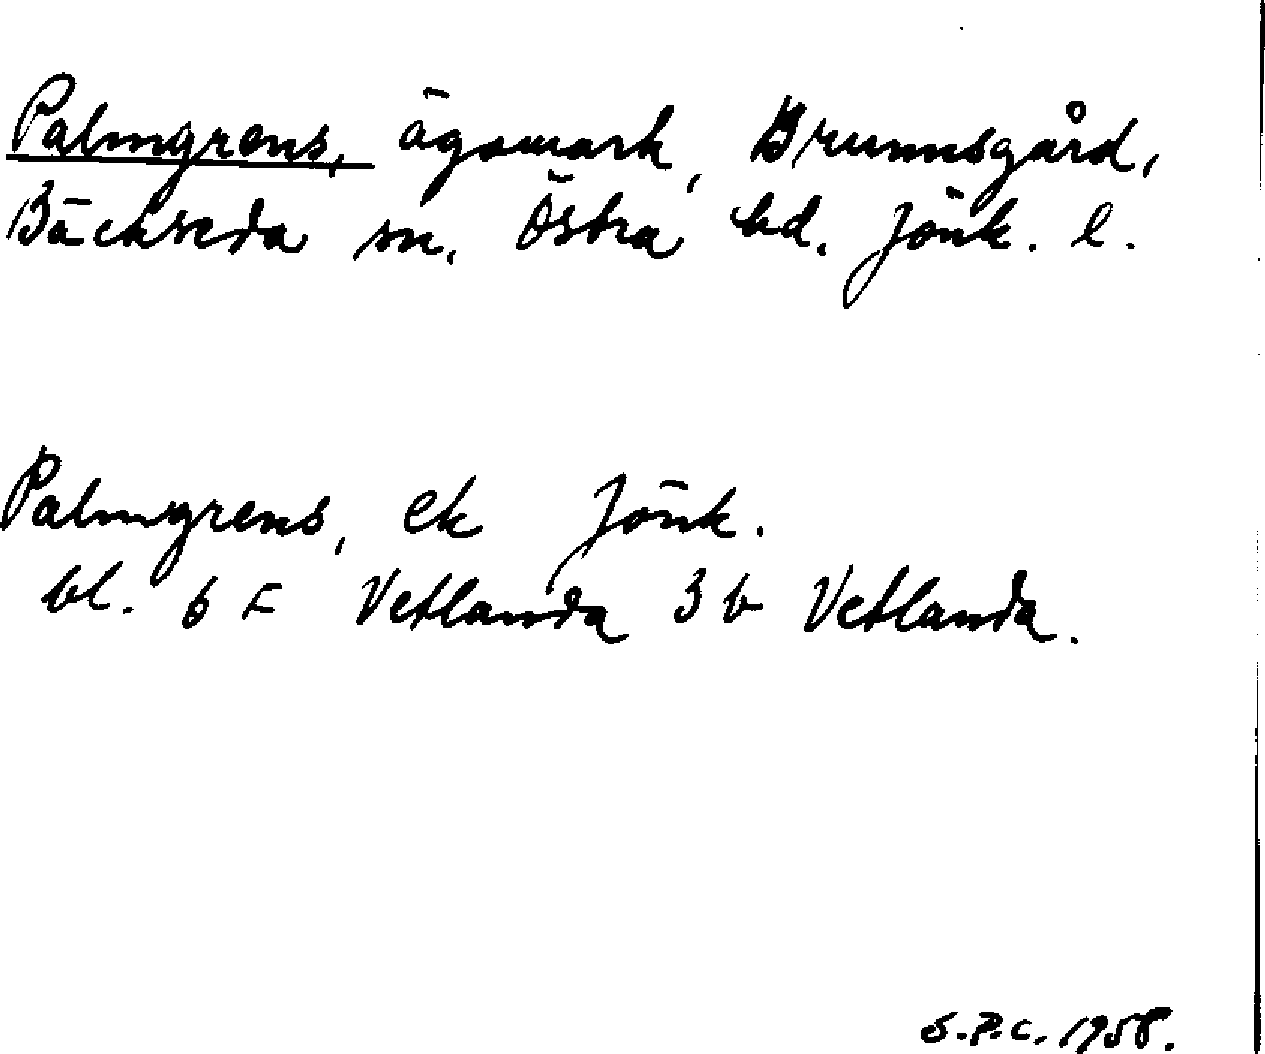 Palmgrens, ägomark, Brunnsgård,
Bäckseda sn. Östra hd. Jönk. l.
Palmgrens, ek Jönk.
bl. 6 F Vetlanda 3 b Vetlanda.
S.P.C. 1958.